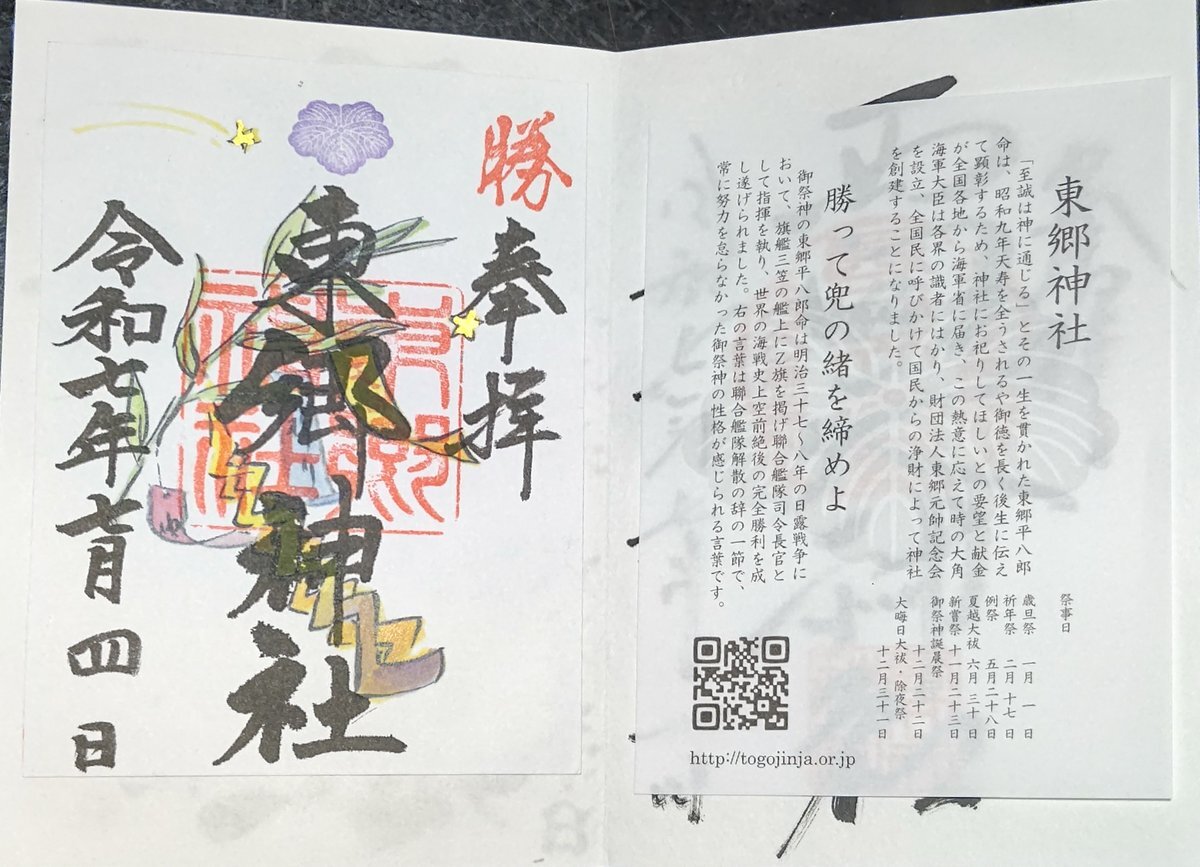 勝
奉拝
東郷神社
令和七年七月四日
東郷神社
「至誠は神に通じる」とその一生を貫かれた東郷平八郎
命は、昭和九年天寿を全うされるや御徳を長く後生に伝え
て顕彰するため、神社にお祀りしてほしいとの要望と献金
が全国各地から海軍省に届き、この熱意に応えて時の大角
海軍大臣は各界の識者にはかり、財団法人東郷元帥記念会
を設立、全国民に呼びかけて国民からの浄財によって神社
を創建することになりました。
勝って兜の緒を締めよ
御祭神の東郷平八郎命は明治三十七～八年の日露戦争に
おいて、旗艦三笠の艦上にZ旗を掲げ聯合艦隊司令長官と
して指揮を執り、世界の海戦史上空前絶後の完全勝利を成
し遂げられました。右の言葉は聯合艦隊解散の辞の一節で、
常に努力を怠らなかった御祭神の性格が感じられる言葉です。
祭事日
歳旦祭 一月 一日
祈年祭 二月 十七日
例祭 五月二十八日
夏越大祓 六月 三十日
新嘗祭 十一月二十三日
御祭神誕展祭
十二月二十二日
大晦日大祓・除夜祭
十二月三十一日
http://togojinja.or.jp